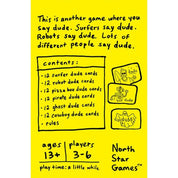 This is another game where you
say dude. Surfers say dude.
Robots say dude. Lots of
different people say dude.
contents:
• 12 surfer dude cards
• 12 robot dude cards
• 12 pizza box dude cards
• 12 pirate dude cards
• 12 ghost dude cards
• 12 cowboy dude cards
• rules
ages
13+
players
3-6
play time: a little while
North
Star
Games™